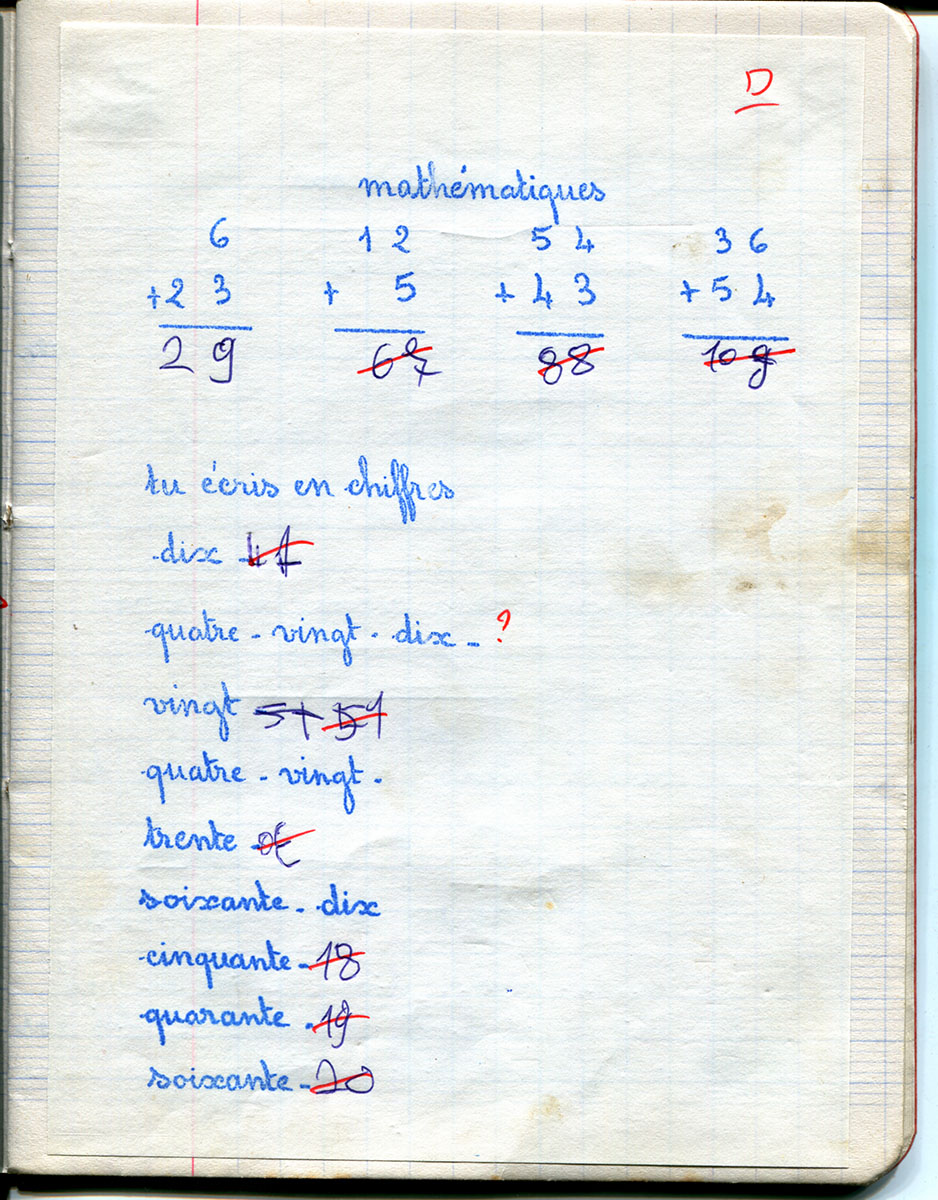 D
mathématiques
6 12 54 36
+23 + 5 +43 +54
29 67 88 109
tu écris en chiffres
dix
quatre-vingt-dix - ?
vingt 51 51
quatre-vingt.
trente
soixante-dix
cinquante - 18
quarante - 19
soixante - 20